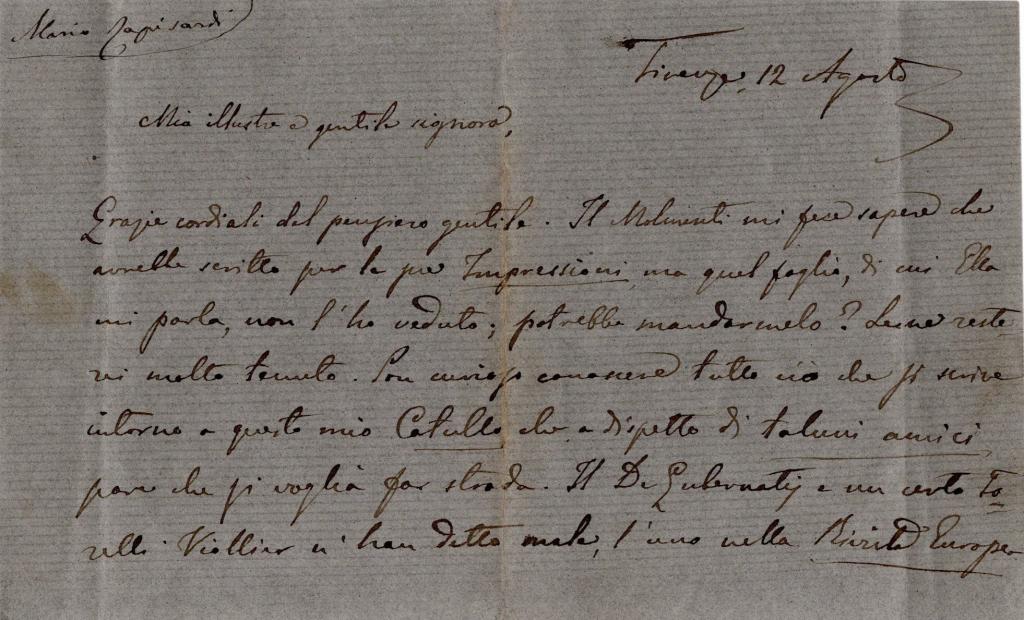 Mario Rapisardi
Firenze, 12 Agosto
Mia illustre e gentile signora,
Grazie cordiali del pensiero gentile. Il Molmenti mi fece sapere che
avrebbe scritto per le sue Impressioni, ma quel foglio, di cui Ella
mi parla, non l'ho veduto; potrebbe mandarmelo? Le ne reste-
rei molto tenuto. Son curioso conoscere tutto ciò che si scrive
intorno a questo mio Catullo che a dispetto di taluni amici
pare che si voglia far strada. Il De Gubernatis e un certo To-
relli Viollier n'han detto male, l'uno nella Rivista Europea